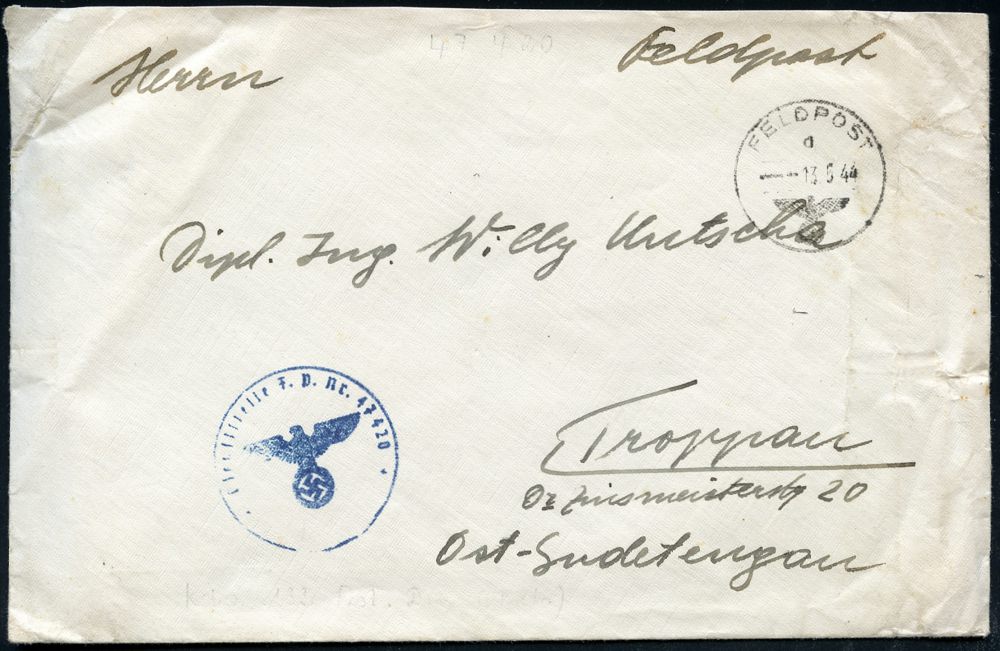 47 420
Herrn
Feldpost
FELDPOST
d
-13 6 44
Dipl. Ing. Willy
Dienststelle F. P. Nr. 47420
Troppau
20
Ost-Sudetengau